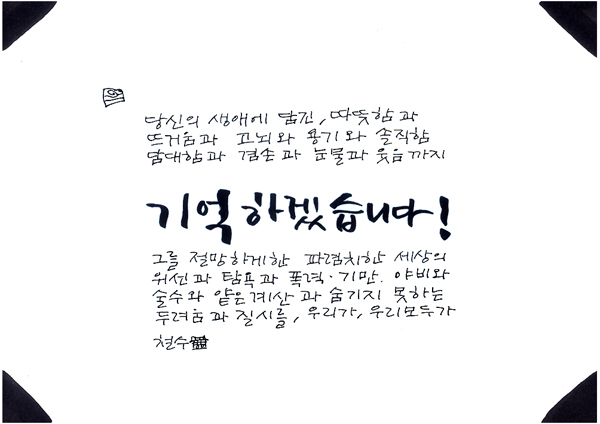 당신의 생애에 담긴, 따뜻함과
뜨거움과 고뇌와 용기와 솔직함
담대함과 겸손과 눈물과 웃음까지
기억하겠습니다!
그를 절망하게한 파렴치한 세상의
위선과 탐욕과 폭력·기만. 야비와
술수와 얕은계산과 숨기지 못하는
두려움과 질시를, 우리가, 우리모두가
철수